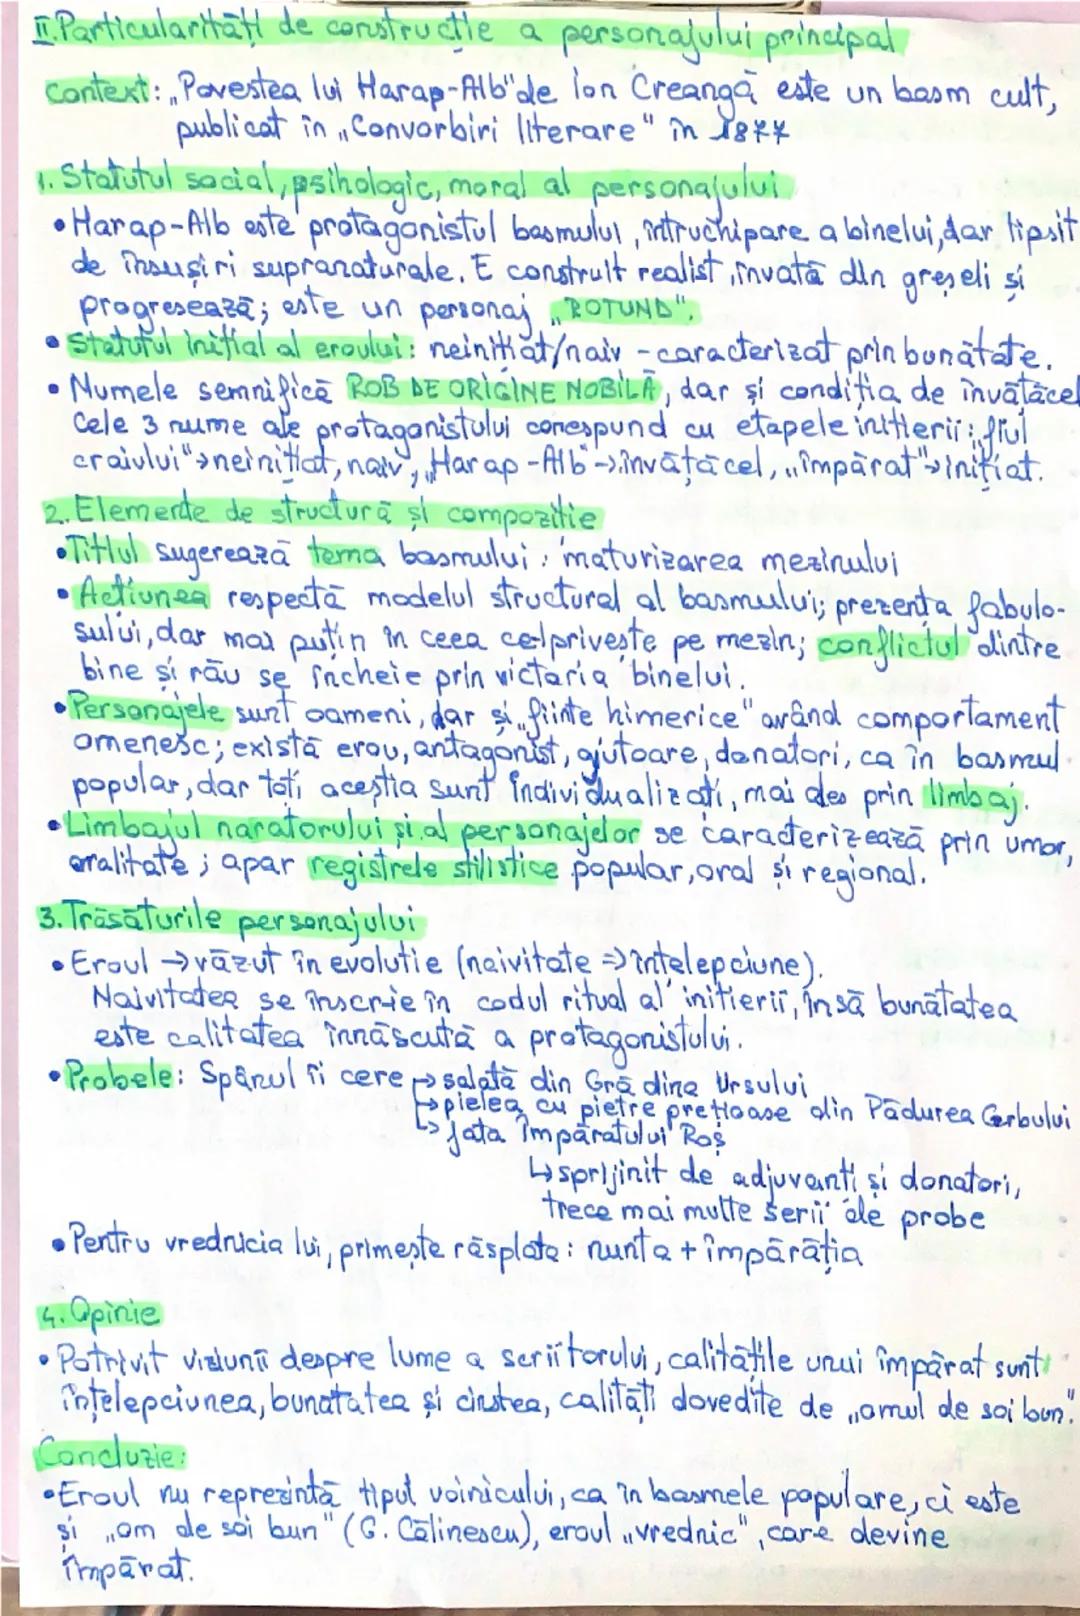 II. Particularități de construcție a personajului principal
Context: „Povestea lui Harap-Alb" de Ion Creangă este un basm cult,
publicat în „Convorbiri literare" în 1877
1. Statutul social, psihologic, moral al personajului
• Harap-Alb este protagonistul basmului, întruchipare a binelui, dar lipsit
de însușiri supranaturale. E construit realist, învată din greșeli și
progresează; este un personaj „ROTUND".
• Statutul inițial al eroului: neinițiat/naiv - caracterizat prin bunătate.
• Numele semnifică ROB DE ORIGINE NOBILĂ, dar și condiția de învățăcel
Cele 3 nume ale protagonistului corespund cu etapele inițierii: „fiul
craiului" → neinițiat, naiv, „Harap-Alb" → învățăcel, „împărat" → inițiat.
2. Elemente de structură și compoziție
• Titlul sugerează tema basmului: maturizarea mezinului
• Acțiunea respectă modelul structural al basmului; prezența fabulo-
sului, dar mai puțin în ceea ce-l privește pe mezin; conflictul dintre
bine și rău se încheie prin victoria binelui.
• Personajele sunt oameni, dar și „ființe himerice" având comportament
omenesc; există erou, antagonist, ajutoare, donatori, ca în basmul
popular, dar toți aceștia sunt individualizați, mai ales prin limbaj.
• Limbajul naratorului și al personajelor se caracterizează prin umor,
oralitate; apar registrele stilistice popular, oral și regional.
3. Trăsăturile personajului
• Eroul → văzut în evoluție (naivitate ⇒ înțelepciune).
Naivitatea se înscrie în codul ritual al inițierii, însă bunătatea
este calitatea înnăscută a protagonistului.
• Probele: Spânul îi cere ↳ salată din Grădina Ursului
↳ pielea cu pietre prețioase din Pădurea Cerbului
↳ fata Împăratului Roș
↳ sprijinit de adjuvanți și donatori,
trece mai multe serii de probe
• Pentru vrednicia lui, primește răsplata: nunta + împărăția
4. Opinie
• Potrivit viziunii despre lume a scriitorului, calitățile unui împărat sunt
înțelepciunea, bunatatea și cinstea, calități dovedite de „omul de soi bun."
Concluzie:
• Eroul nu reprezintă tipul voinicului, ca în basmele populare, ci este
și „om de soi bun" (G. Călinescu), eroul „vrednic", care devine
împărat.